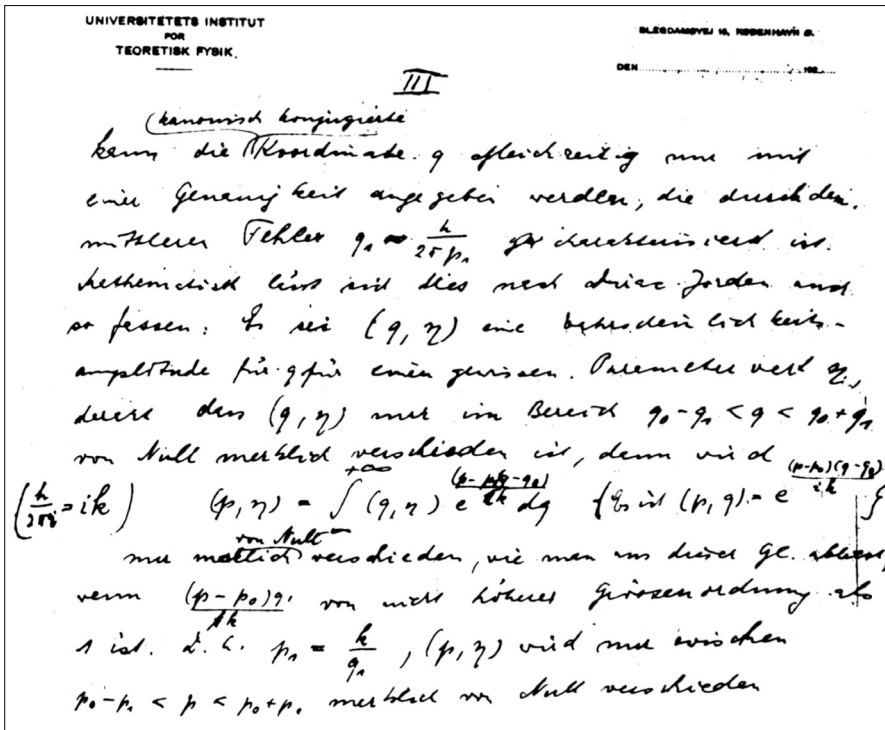 UNIVERSITETETS INSTITUT
FOR
TEORETISK FYSIK.
BLEGDAMSVEJ 15, KØBENHAVN Ø.
DEN 192
III
(kanonisch konjugierte
kann die Koordinate q gleichzeitig nur mit
einer Genauigkeit angegeben werden, die durch den
mittleren Fehler q₁ ~ h/2πp₁ charakterisiert ist.
Mathematisch lässt sich dies nach Dirac-Jordan
so fassen: Es sei (q, η) eine Wahrscheinlichkeits-
amplitude für q für einen gewissen Parameterwert η,
derart dass (q, η) nur im Bereich q₀-q₁ < q < q₀+q₁
von Null merklich verschieden ist, dann wird
(h/2πi = ik) (p, η) = ∫ (q, η) e dq {Es ist (p, q) = e^{(p-p₀)(q-q₀)/ik}}
von Null
nur merklich verschieden, wie man aus dieser Gl. abliest,
wenn (p-p₀)q₁/k von nicht höherer Grössenordnung als
1 ist. D.h. p₁ = k/q₁, (p, η) wird nur zwischen
p₀-p₁ < p < p₀+p₁ merklich von Null verschieden